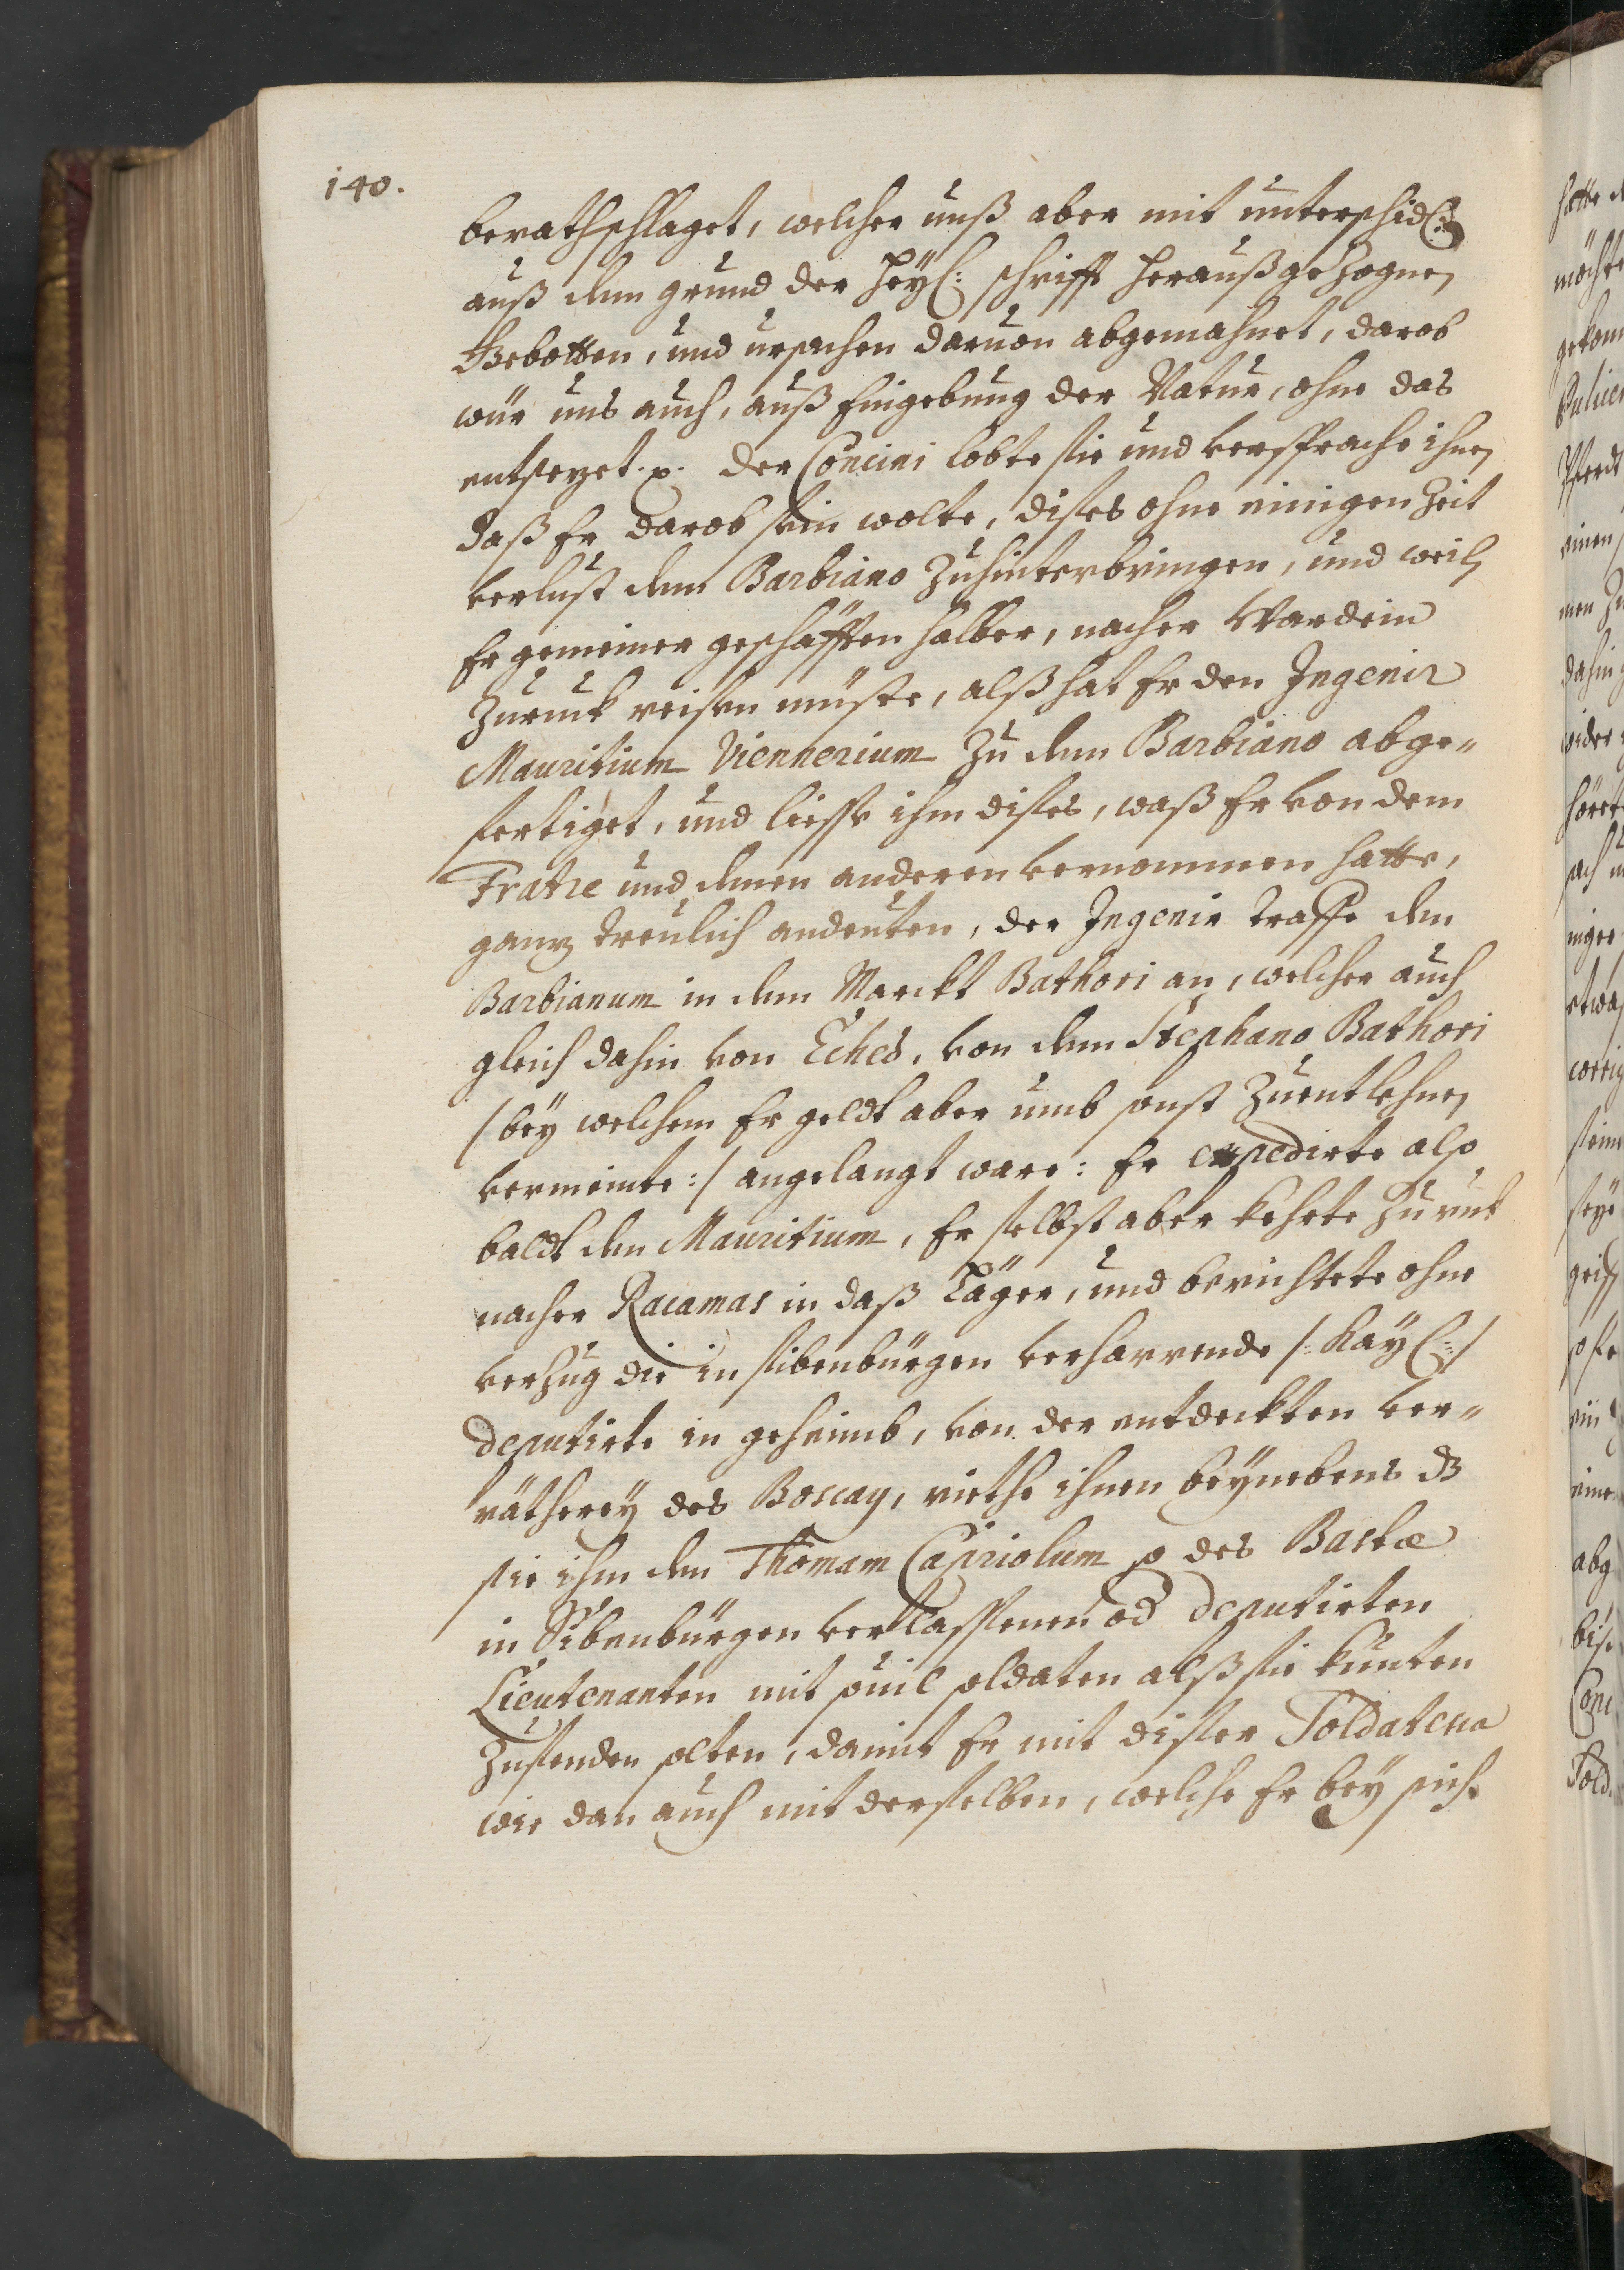 140.
berathschlaget, welcher unß aber mit unterschidl:
auß dem grund der Heÿl: schrifft heraußgezognen
Gebotten, und ursachen daruon abgemahnet, darob
wür uns auch, auß Eingebung der Natur, ohne das
entsezet. p. der Concini lobte sie und versprache ihnen
daß Er darob sein wolte, dises ohne einigen Zeit
verlust dem Barbiano Zuhinterbringen, und weilen
Er gemeiner geschäfften halber, nacher Wardein
Zuruck reisen müste, alß hat Er den Ingenir
Mauritium Viennerium Zu dem Barbiano abge„
fertiget, und liesse ihm dises, waß Er von dem
Fratre und denen anderen vernommen hatte,
ganz treulich andeuten, der Ingenir traffe den
Barbianum in dem Marckt Bathori an, welcher auch
gleich dahin von Eched, von dem Stephano Bathori
/ beÿ welchem Er geldt aber umb sonst Zuentlehnen
vermeinte :/ angelangt ware: Er expedirte also
baldt den Mauritium, Er selbst aber kehrte Zuruck
nacher Racamas in daß Läger, und berichtete ohne
verzug die in sibenbürgen verharrende /: Kaÿl: :/
deputirte in geheimb, von der entdeckten ver„
rätherey des Boscay, riethe ihnen beÿnebens dz
sie ihm den Thomam Capriolum p des Bastæ
in Sibenbürgen verlassenen od deputirten
Lieutenanten mit souil soldaten alß sie kunten
Zusenden solten, damit Er mit diser Soldatesca
wie dan auch mit derselben, welche Er beÿ sich